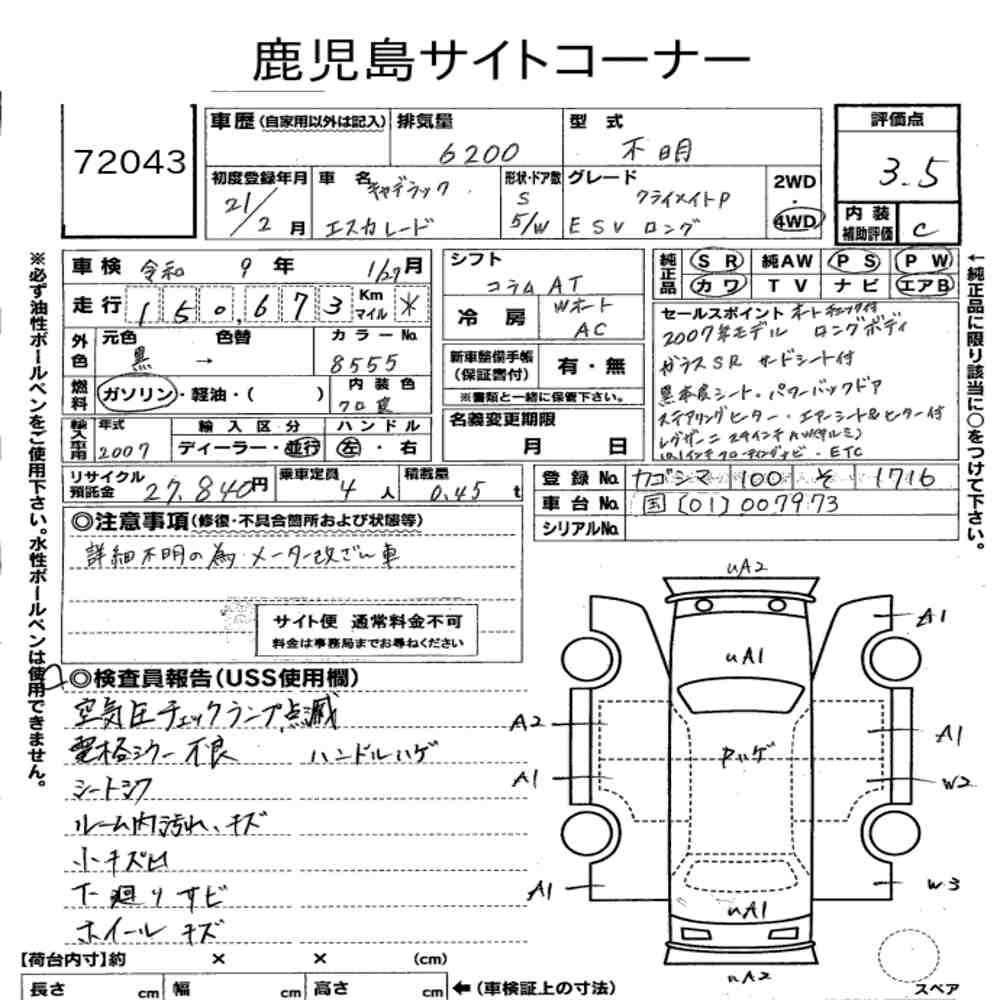 鹿児島サイトコーナー
72043
車歴 (自家用以外は記入)
排気量
6200
型式
不明
評価点
3.5
初度登録年月
21/2月
車名
キャデラック
エスカレード
形状・ドア数
S
5/W
グレード
クライメイトP
ESV ロング
2WD
・
4WD
内装
補助評価
C
車検 令和 9年 1/27月
走行 150,673 Km マイル *
シフト
コラムAT
冷房
Wオート
AC
純正品
SR 純AW PS PW
カワ TV ナビ エアB
外色
元色 色替
黒 →
カラーNo.
8555
燃料
ガソリン・軽油・( )
内装色
クロ
新車整備手帳
(保証書付)
有・無
※書類と一緒に保管下さい。
名義変更期限
月 日
セールスポイント オートチェック付
2007年モデル ロングボディ
ガラスSR サードシート付
黒本皮シート・パワーバックドア
ステアリングヒーター・エアーシート&ヒーター付
レグザーニ 24インチAW(サルミ)
10.1インチフローティングナビ・ETC
輸入車用
年式
2007
輸入区分
ディーラー・並行
ハンドル
左・右
リサイクル
預託金
27,840円
乗車定員
4人
積載量
0.45t
登録No.
カゴシマ 100 そ 1716
車台No.
国[01]007973
シリアルNo.
◎注意事項(修復・不具合箇所および状態等)
詳細不明の為、メーター改ざん車
サイト便 通常料金不可
料金は事務局までお尋ねください
◎検査員報告(USS使用欄)
空気圧チェックランプ点滅
電格ミラー不良 ハンドルハゲ
シートシワ
ルーム内汚れ、キズ
小キズ凹
下廻りサビ
ホイールキズ
uA2
A1
uA1
A2
A1
Pハゲ
A1
W2
A1
W3
uA1
uA2
スペア
【荷台内寸】約 × × (cm)
長さ cm 幅 cm 高さ cm ←(車検証上の寸法)
※必ず油性ボールペンをご使用下さい。水性ボールペンは使用できません。
←純正品に限り該当に○をつけて下さい。